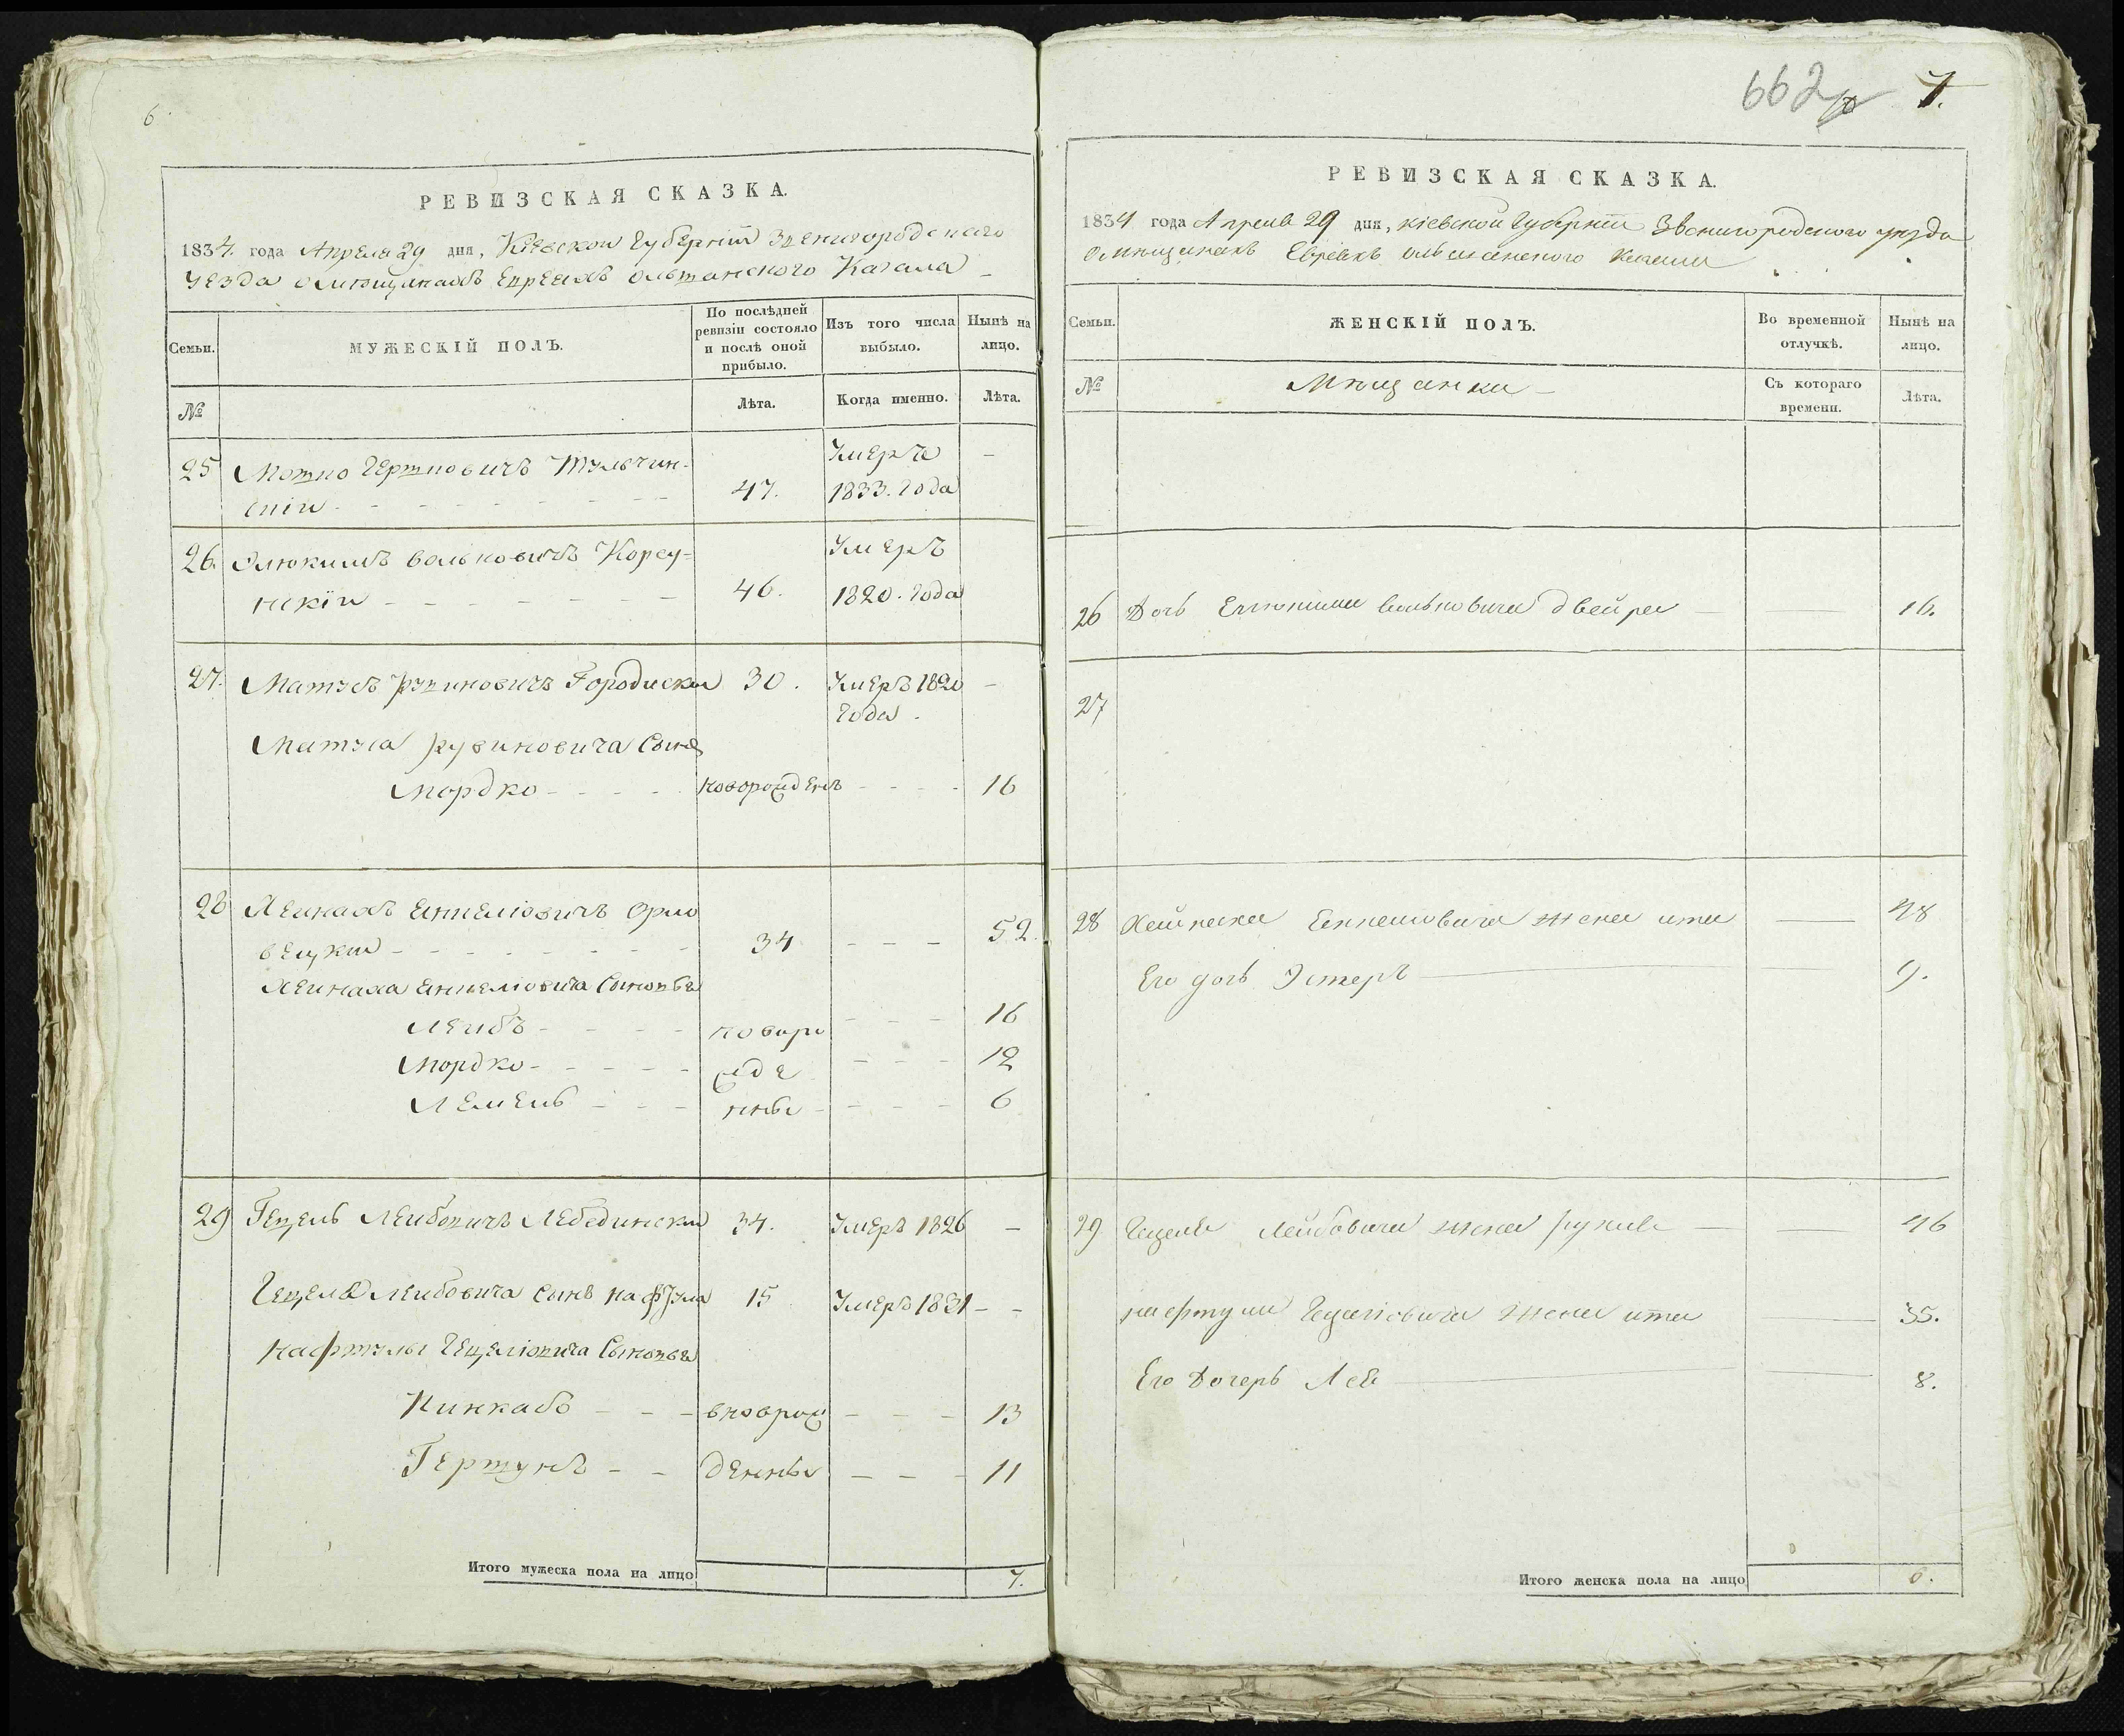 6.
РЕВИЗСКАЯ СКАЗКА.
1834. года Апреля 29 дня, Кіевской Губерніи Звенигородскаго
уезда о мещанахъ Евреяхъ Ольшанского Кагала
Семьи.
МУЖЕСКІЙ ПОЛЪ.
По послѣдней ревизіи состояло и послѣ оной прибыло.
Изъ того числа выбыло.
Нынѣ на лицо.
№
Лѣта.
Когда именно.
Лѣта.
25 Мошко Гершковичъ Тульчин- Умеръ –
скій 47. 1833. Года
26. Элюкимъ Вольковичъ Корсу- Умеръ
нскій 46. 1820. Года
27. Матусъ Рувиновичъ Городиски 30. Умеръ 1820 –
Года.
Матуса Рувиновича Сынъ
Мордко новорожденъ 16
28 Хейнахъ Еннеліовичъ
34 – – – 52.
Хейнаха Еннеліовича Сыновья
Лейбъ – – – 16
Мордко новоро жде нны – – – 12
Лемель – – – 6
29 Гецель Лейбовичъ Лебедински 34. Умеръ 1826 –
Гецеля Лейбовича сынъ 15 Умеръ 1831 – –
Нафтулы Гецеліовича Сыновья
Пинкасъ вноврож – – – 13
Гершунъ денны – – – 11
Итого мужеска пола на лицо 7.
662 7.
РЕВИЗСКАЯ СКАЗКА.
1834 года Апреля 29 дня, Кіевской Губерніи Звенигородского уезда
О мещанахъ Евреяхъ Ольшанского Кагала
Семьи.
ЖЕНСКІЙ ПОЛЪ.
Во временной отлучкѣ.
Нынѣ на лицо.
№
Мещанки –
Съ котораго времени.
Лѣта.
26 Дочь Елюкима Вольковича Двейра — 16.
27
28 Хейнаха Еннеліовича жена Ита — 48
Его дочь Эстеръ — 9.
29 Гецеля Лейбовича жена — 46
Нафтулы Гецеліовича жена Ита — 35.
Его Дочерь Лея — 8.
Итого женска пола на лицо 6.